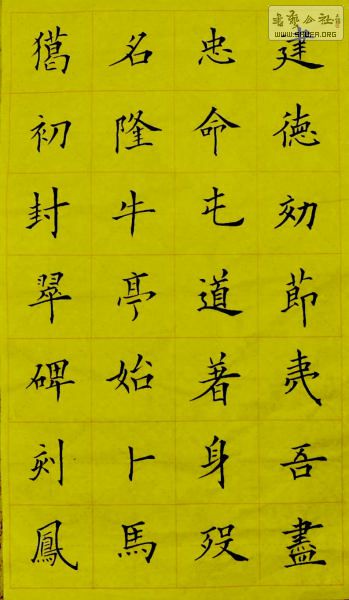 建德効節夷吾盡
忠命屯道著身歿
名隆牛亭始卜馬
獦初封翠碑刻鳳
書藝公社